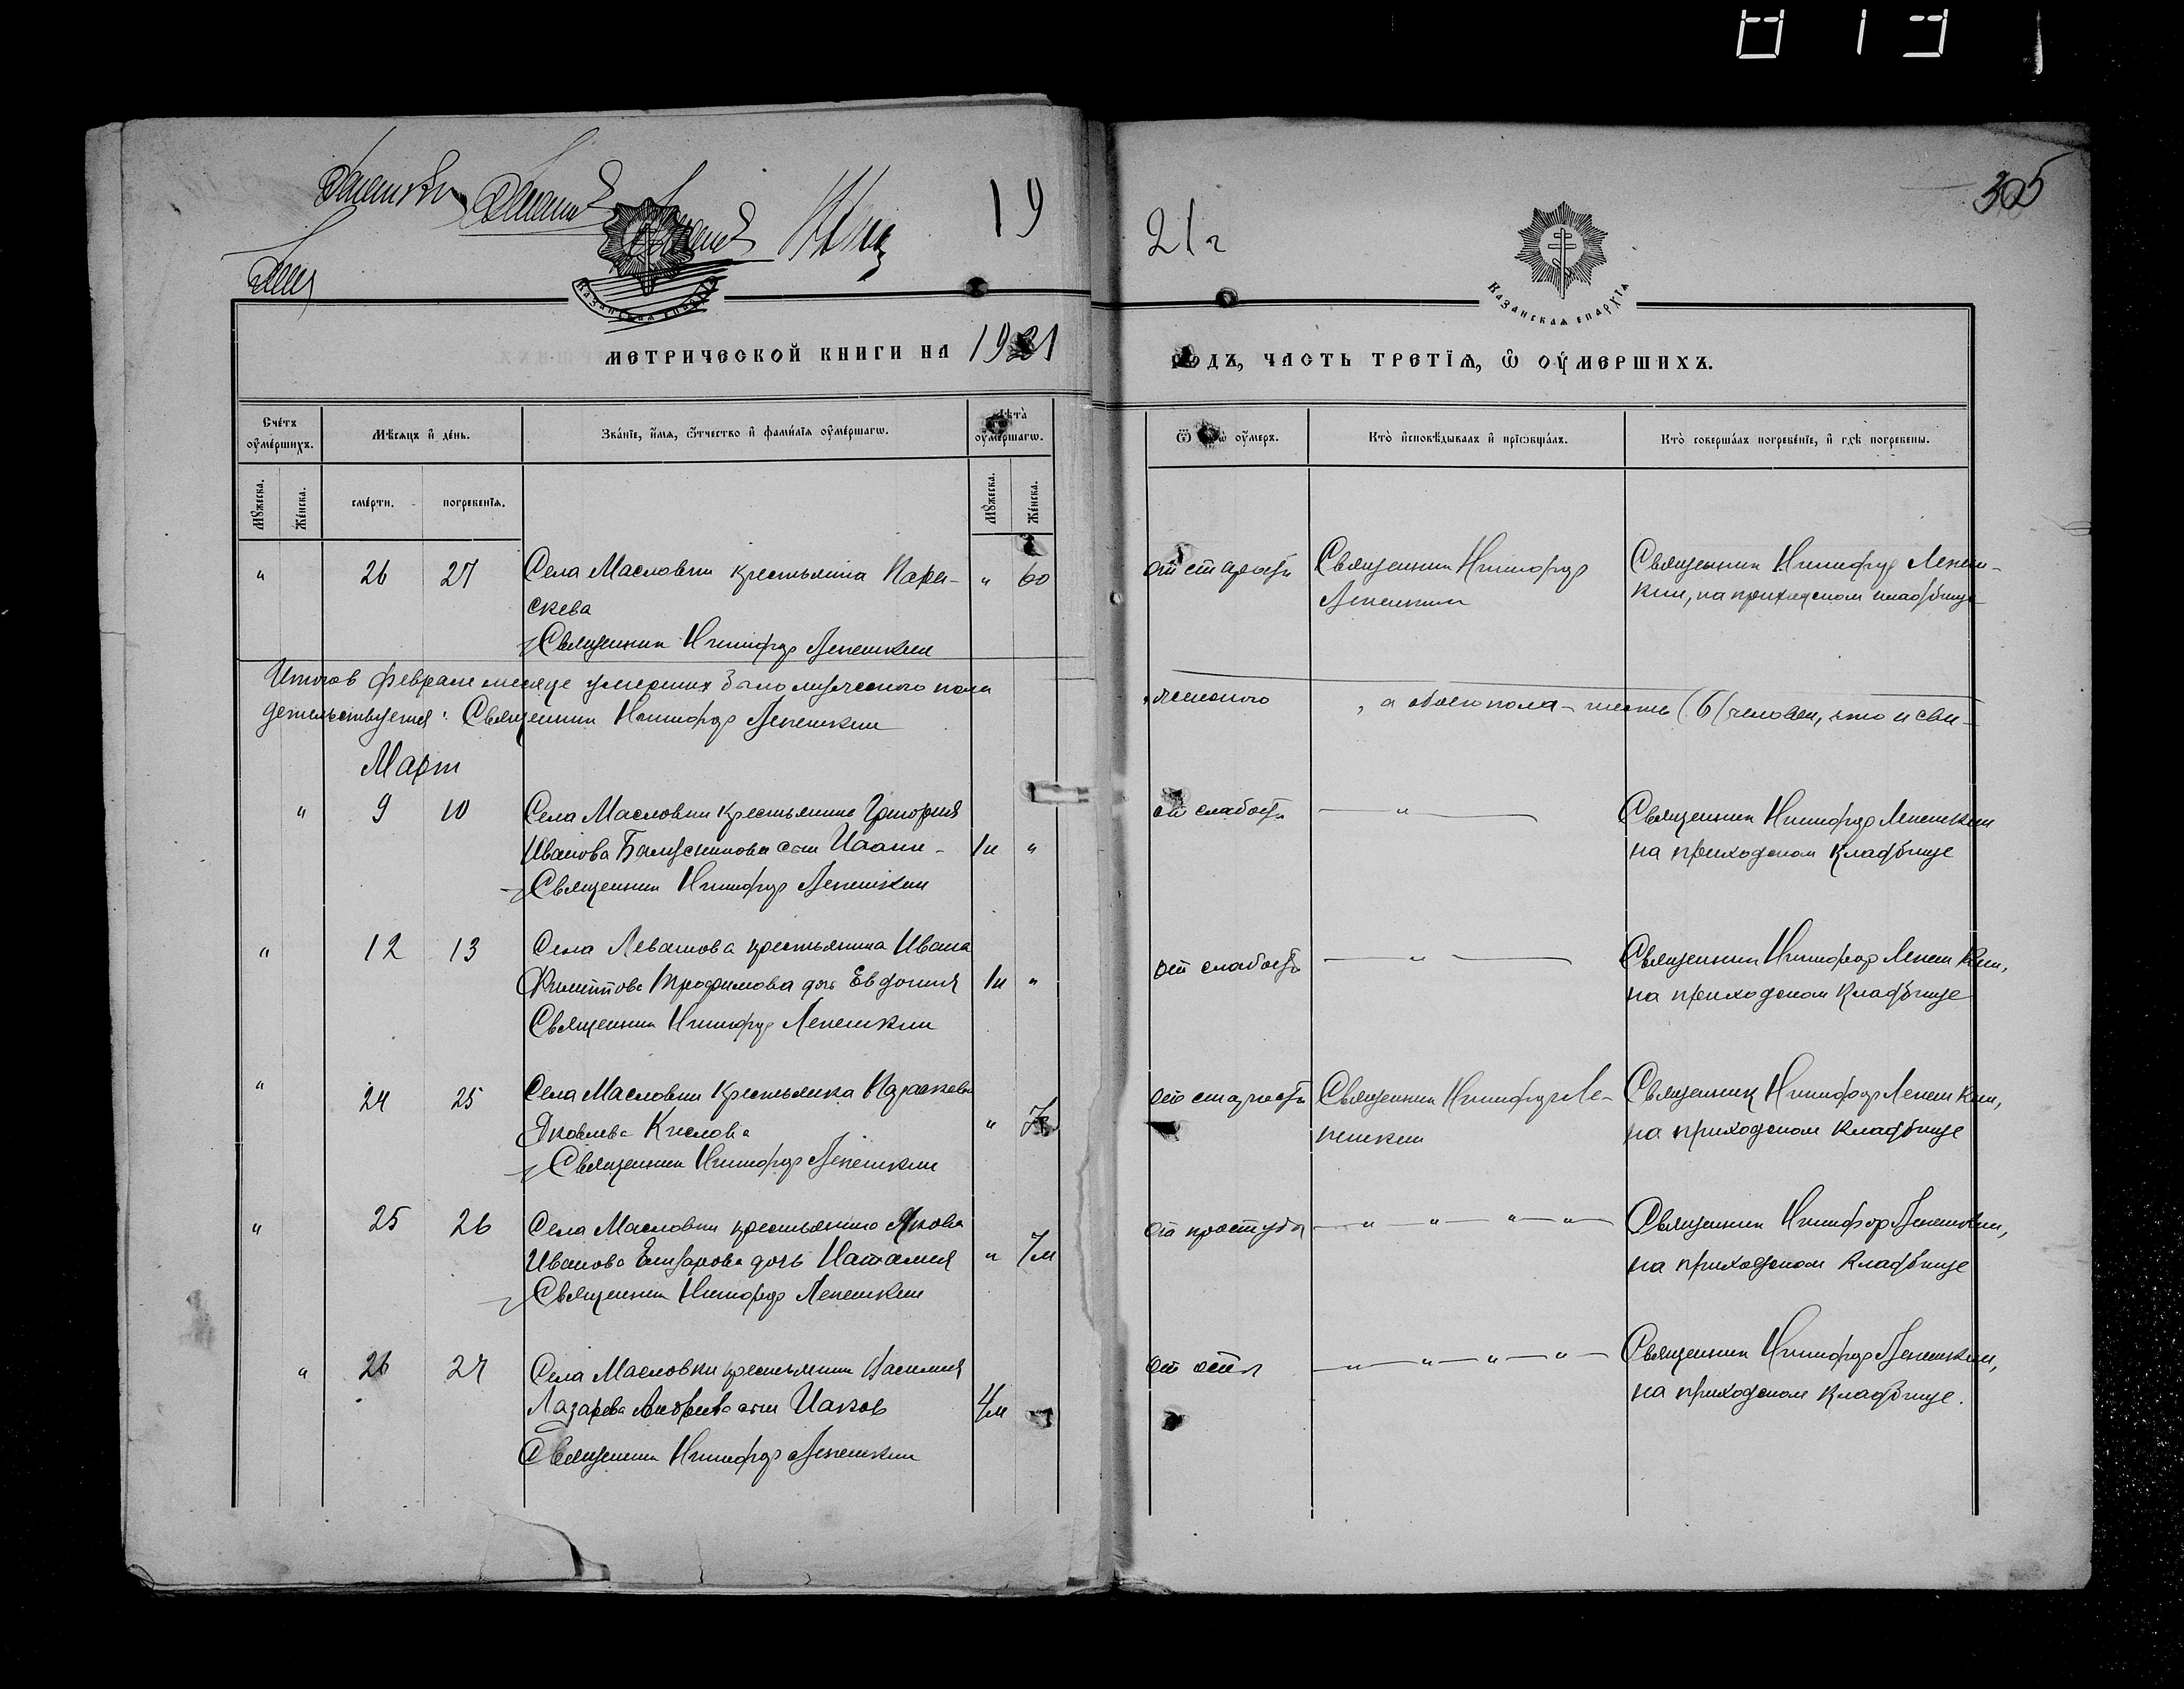 305
19
21 г
Казанская епархїя
Казанская епархїя
МЕТРИЧЕСКОЙ КНИГИ НА 1921
ГОДЪ, ЧАСТЬ ТРЕТЇѦ, Ѡ ОУМЕРШИХЪ.
Счетъ оумершихъ.
Мѣсяцъ и день.
Званїе, имя, отчество и фамилїя оумершагѡ.
Лѣта оумершагѡ.
оумеръ.
Кто исповѣдывалъ и прїѡбщалъ.
Кто совершалъ погребенїе, и гдѣ погребены.
Мужеска.
Женска.
смерти.
погребенїя.
Мужеска.
Женска.
" 26 27 Села Масловки крестьянка Пара- " 60 от старости Священник Никифор Священник Никифор Лепеш-
скева Лепешкин кин, на приходском кладбище
Священник Никифор Лепешкин
Итого в феврале месяце умерших было мужеского пола женского , а обоего пола - шесть (6) человек, что и сви-
детельствуется: Священник Никифор Лепешкин
Март
" 9 10 Села Масловки крестьянина Григория от слабости " Священник Никифор Лепешкин
Иванова сын Иоанн - 1н " на приходском кладбище
Священник Никифор Лепешкин
" 12 13 Села Левашова крестьянина Ивана Священник Никифор Лепешкин,
Филиппова Трофимова дочь Евдокия 1н " от слабости " на приходском кладбище
Священник Никифор Лепешкин
" 24 25 Села Масловки крестьянка Параскева от старости Священник Никифор Ле- Священник Никифор Лепешкин,
Яковлева Кислова " пешкин на приходском кладбище
Священник Никифор Лепешкин
" 25 26 Села Масловки крестьянина Якова от простуды " " " " Священник Никифор Лепешкин,
Иванова Елизарова дочь Наталия " 7м на приходском кладбище
Священник Никифор Лепешкин
" 26 27 Села Масловки крестьянина Василия " " " " Священник Никифор Лепешкин,
Лазарева сын Иаков 4м на приходском кладбище.
Священник Никифор Лепешкин